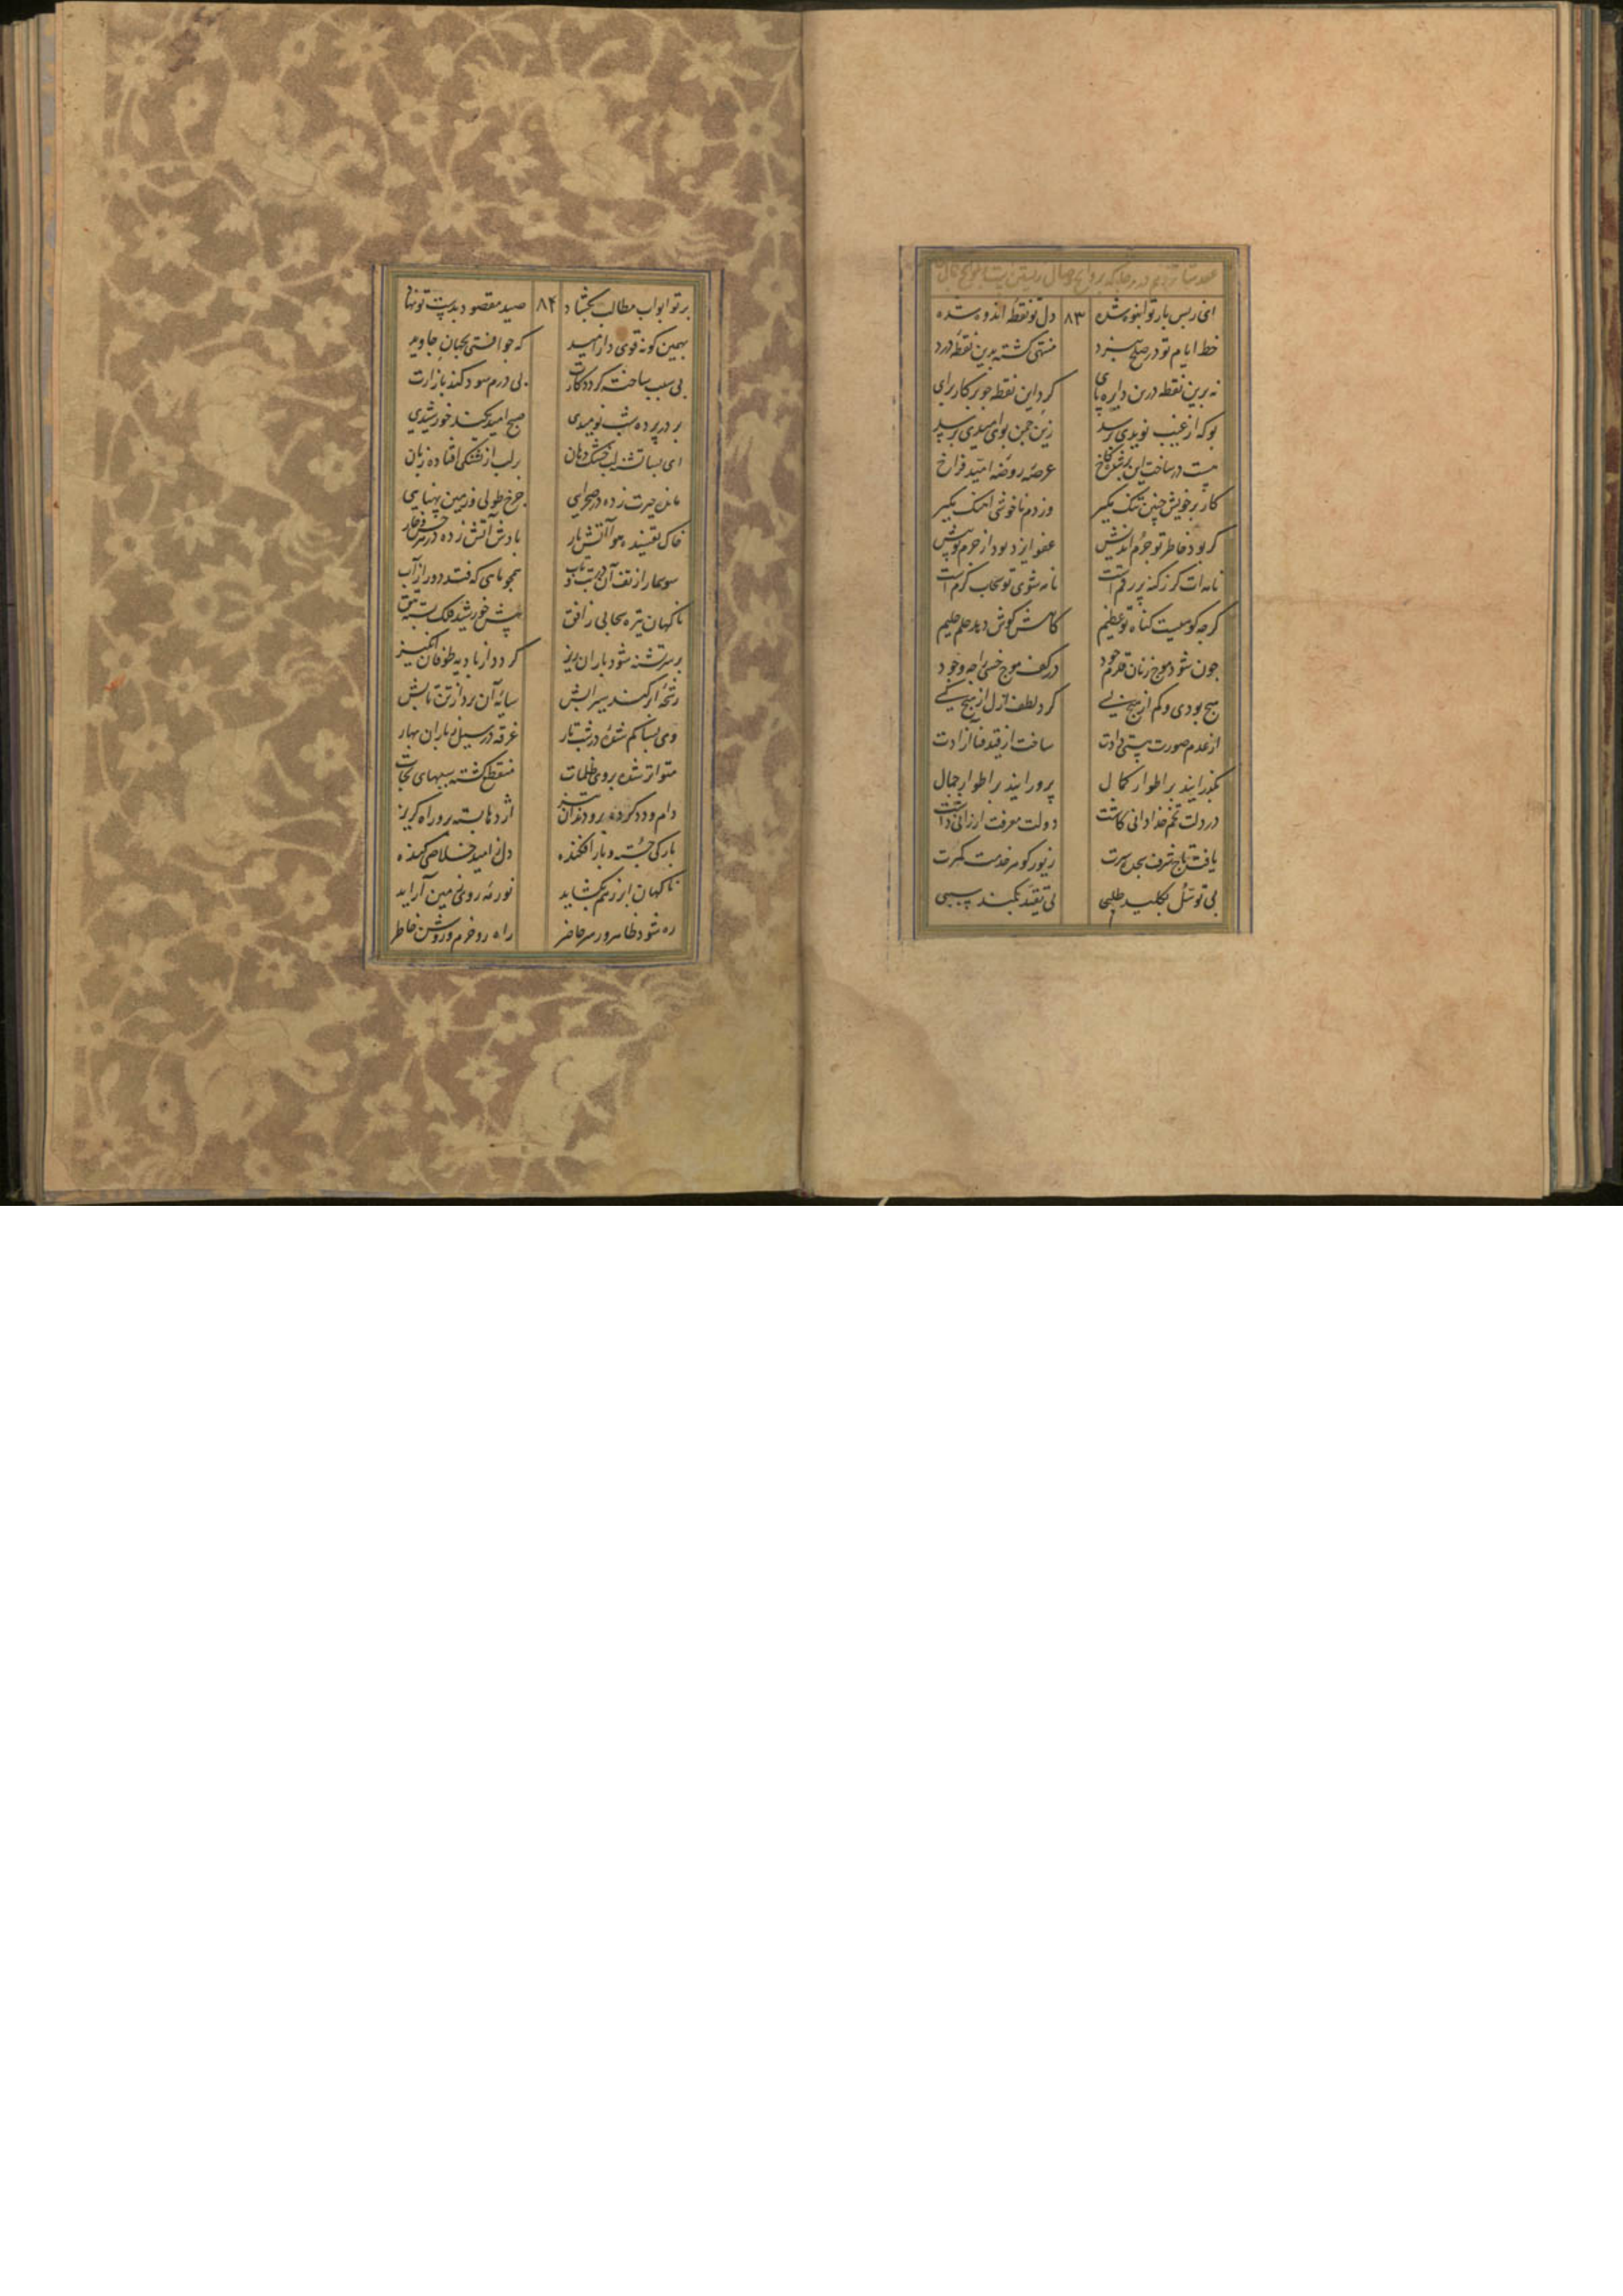 ای ز بس بار تو انبوه شده ۸۳ دل تو نقطه اندوه شده
خط ایام تو در صلح و نبرد منتهی گشته بدین نقطه درد
نه برین نقطه درین دایره پای گرد این نقطه چو پرکار برای
بو که از غیب نویدی برسد زین چمن بوی امیدی برسد
هست در ساحت این عرصه روضه امید فراخ
کار بر خویش چنین تنگ مگیر وز دم ناخوشی آهنگ مگیر
گر بود خاطر تو جرم اندیش عفو ایزد بود از جرم تو بیش
نامه‌ات گر ز گنه پر رقم است نامه شوی تو سحاب کرم است
گرچه کوهیست گناه تو عظیم کاهش کوهش دهد حلم حلیم
چون شود موج زنان قلزم جود در کف موج خسی را چه وجود
هیچ بودی و کم از هیچ بسی کرد لطف ازل از هیچ کسی
از عدم صورت هستی دادت ساخت از قید فنا آزادت
بگذرانید بر اطوار کمال پرورانید بر اطوار جمال
در دلت تخم خدادانی کاشت دولت معرفت ارزانی داشت
یافت تاج شرف سجده سرت زیور گوهر خدمت کمرت
بی توسل بکلید طلبی بی تقید بکمند سببی
بر تو ابواب مطالب بگشاد ۸۴ صید مقصود بدست تو نهاد
بهمین گونه قوی دار امید که چو افتی بجهان جاوید
بی سبب ساخته گردد کارت بی درم سود کند بازارت
بر درد پرده شب نومیدی صبح امید کند خورشیدی
ای بسا تشنه لب خشک دهان بر لب از تشنگی افتاده زبان
مانده حیرت زده در صحرایی چرخ طولی و زمین پهنایی
خاک تفسیده هوا آتش بار بادش آتش زده در هر خس و خار
سوسمار از تف آن در تب و تاب همچو ماهی که فتد دور از آب
ناگهان تیره سحابی ز افق پیش خورشید فلک بسته تتق
بر سر تشنه شود باران ریز گردد از بادیه طوفان انگیز
رشحه ابر کند سیرابش سایه آن برد از تن تابش
وی بسا گم شده در شب تار غرقه در سیل ز باران بهار
متواتر شده بر وی ظلمات منقطع گشته سببهای نجات
دام و دد کرده برو دندان تیز اژدها بسته برو راه گریز
بارگی جسته و بار افکنده دل ز امید خلاصی کنده
ناگهان ابر ز هم بگشاید نور مه روی زمین آراید
ره شود ظاهر و رهبر حاضر راه رو خرم و روشن خاطر